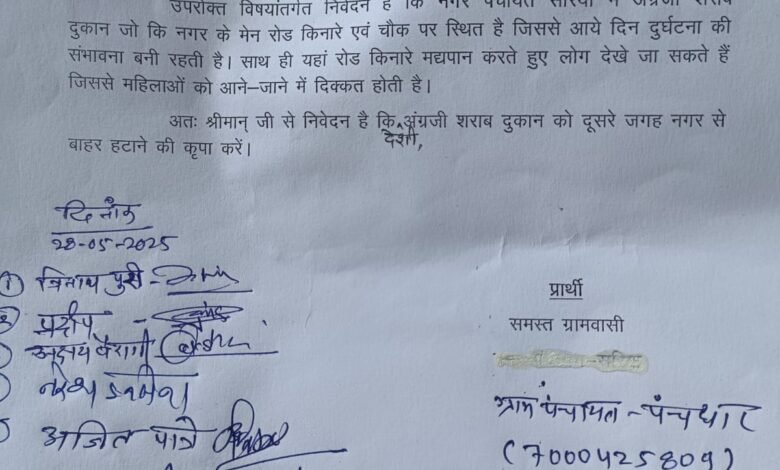 उपरोक्त विषयांतर्गत निवेदन है कि नगर पंचायत सरिया में अंग्रेजी शराब
दुकान जो कि नगर के मेन रोड किनारे एवं चौक पर स्थित है जिससे आये दिन दुर्घटना की
संभावना बनी रहती है। साथ ही यहां रोड किनारे मद्यपान करते हुए लोग देखे जा सकते हैं
जिससे महिलाओं को आने–जाने में दिक्कत होती है।
अतः श्रीमान् जी से निवेदन है कि अंग्रजी शराब दुकान को दूसरे जगह नगर से
देशी,
बाहर हटाने की कृपा करें।
दिनाँक
28-05-2025
① त्रिनाथ पुरी -
② प्रदीप -
अक्षय बैरागी
नरेश
अजित पात्रे
प्रार्थी
समस्त ग्रामवासी
ग्राम पंचायत - पंचधार
(7000425809)